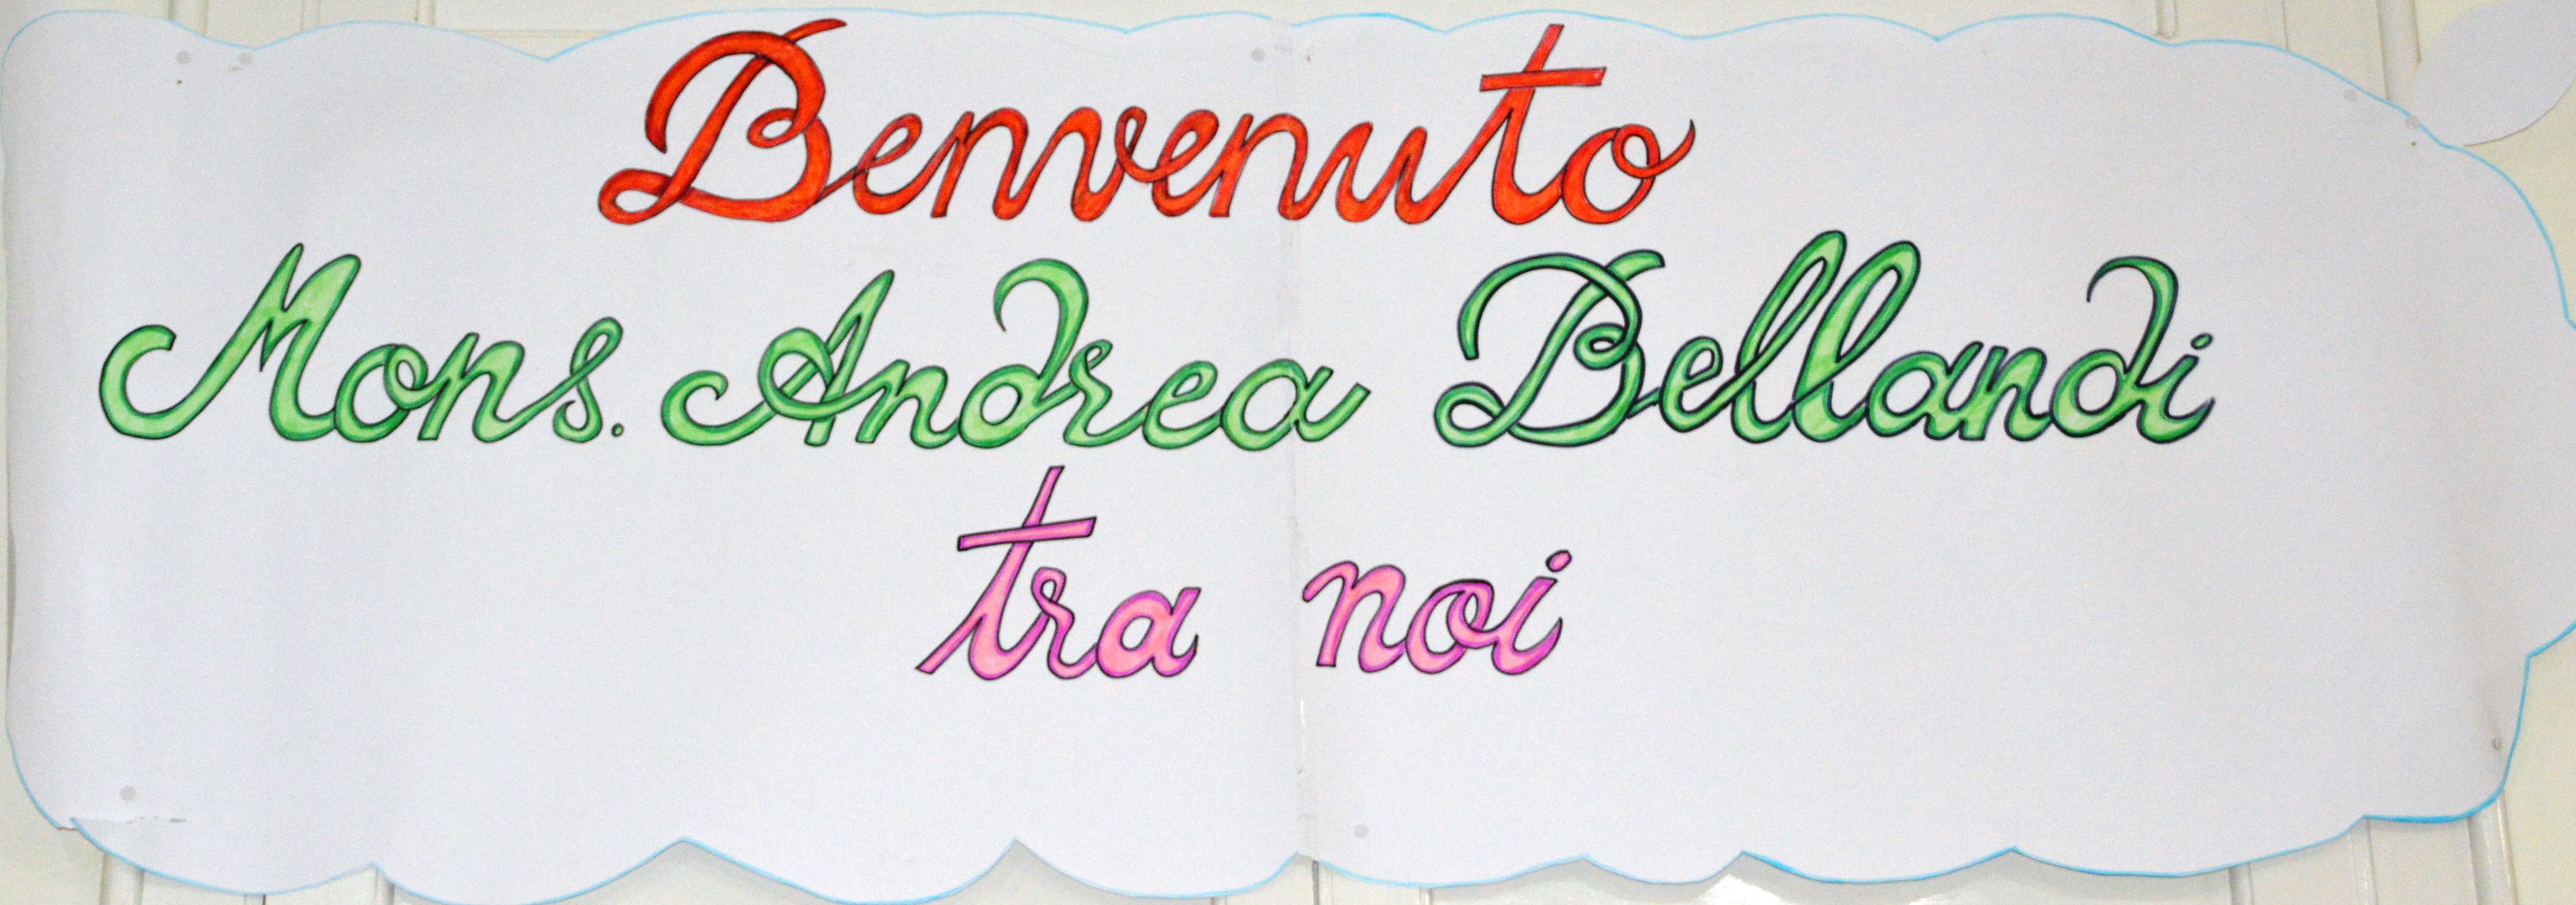 Benvenuto
Mons. Andrea Bellandi
tra noi